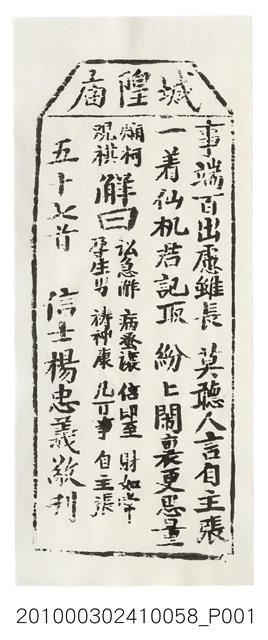 城隍廟
事端百出慮雖長 莫聽人言自主張
一着仙机君記取 紛〻鬧裏更思量
爛柯
觀棋
解曰
訟急解 病蚤禳 信即至 財如常
孕生男 禱神康 凡百事 自主張
五十七首 信士楊忠義敬刊
201000302410058_P001